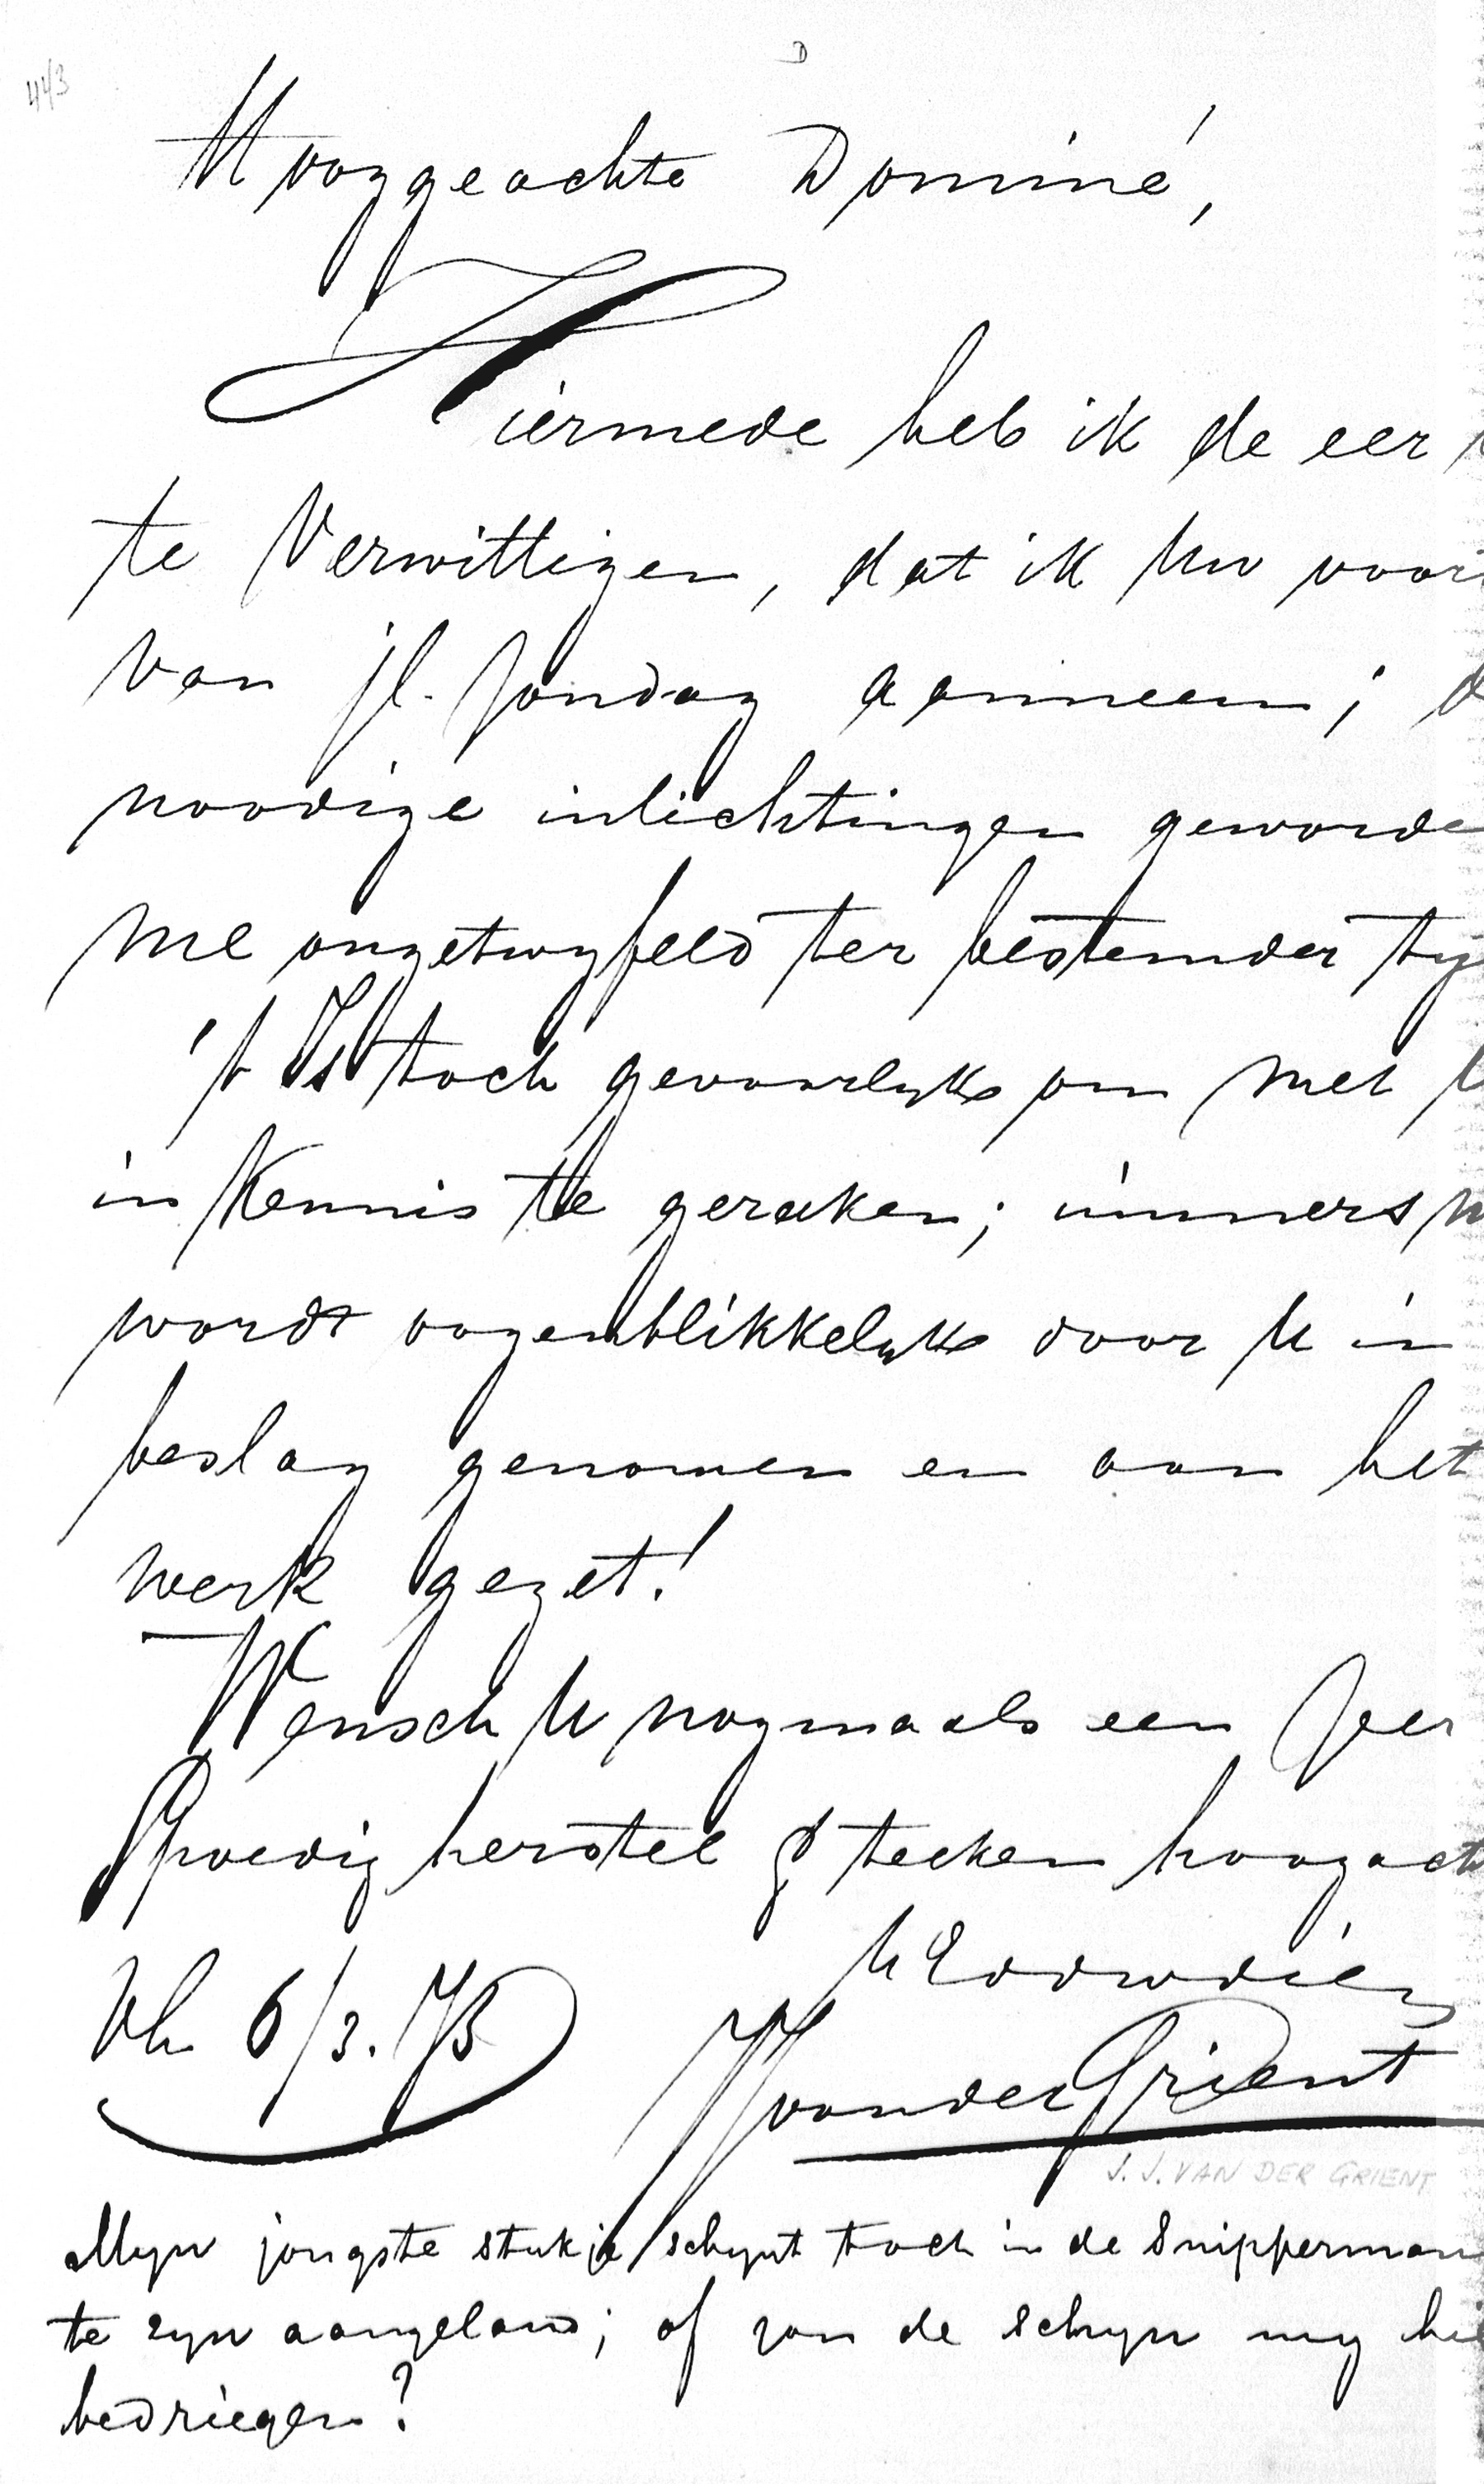 443
D
Hooggeachte Dominé,
Hiermede heb ik de eer
te Verwittigen, dat ik Uw
van jl. Zondag aanneem;
noodige inlichtingen geworde
me ongetwyfeld ter bestemder ty
't Is toch gevaarlyk om met
in Kennis te geraken; immers
wordt oogenblikkelyk door U in
beslag genomen en aan het
werk gezet!
Wensch U nogmaals een zeer
Spoedig herstel & teeken hoogacht
UEdwdien
Vh 6/3.
JJvanderGrient
J. J. VAN DER GRIENT
Myn jongste stukje schynt toch in de Snipperman
te zyn aangeland; of zou de schyn my hie
bedriegen?